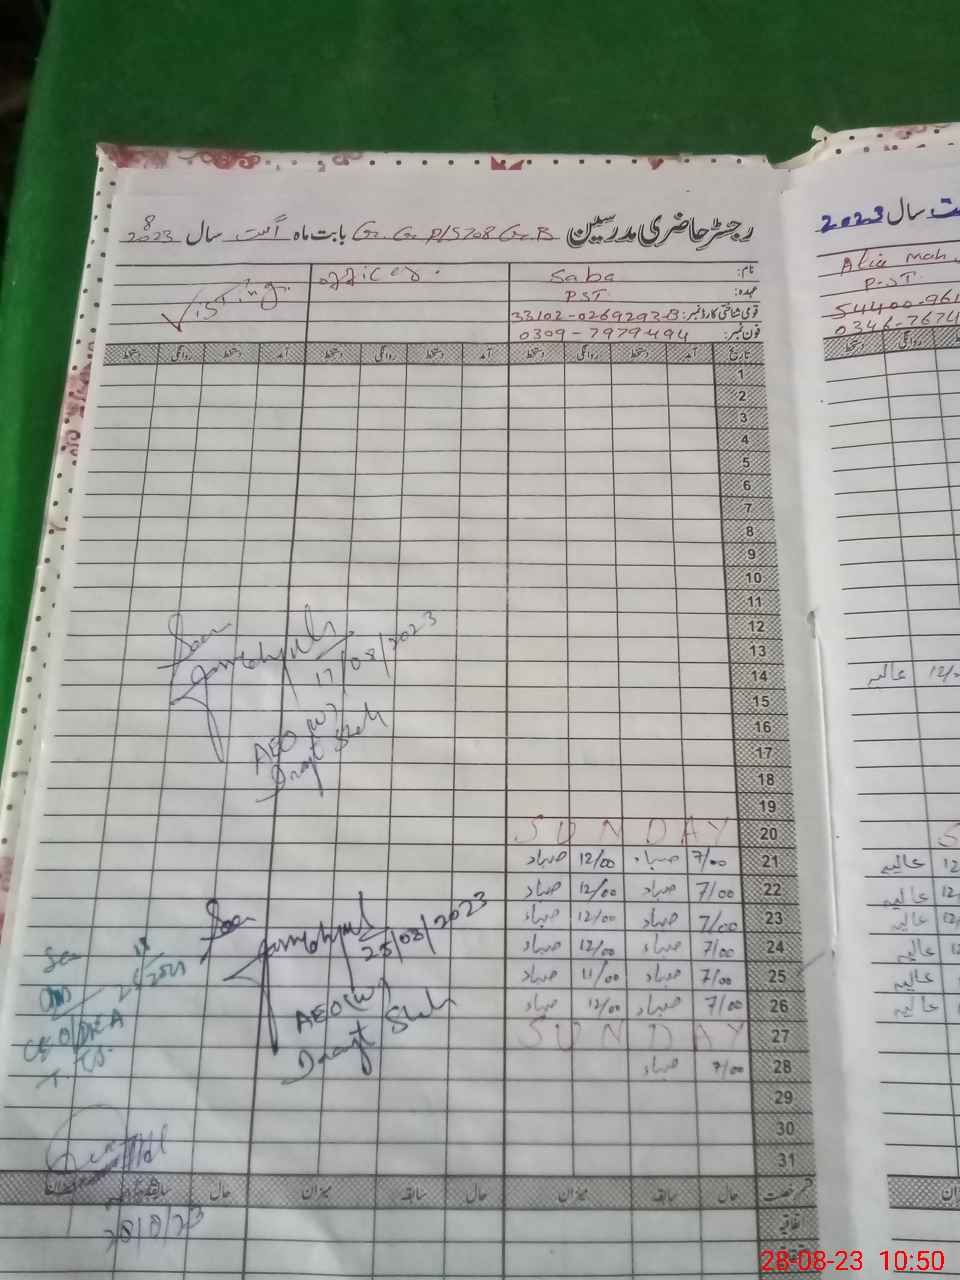 رجسٹر حاضری مدرسین G.G.P/S 708 G.B بابت ماہ اگست سال 2023
8
نام: Saba
عہدہ: PST
قومی شناختی کارڈ نمبر: 33102-0269293-8
فون نمبر: 0309-7979494
Visting officer.
تاریخ آمد دستخط روانگی دستخط آمد دستخط روانگی دستخط
1
2
3
4
5
6
7
8
9
10
11
12
13
14
15
16
17
18
19
20 SUNDAY
21 7/00 صباء 12/00 صباء
22 7/00 صباء 12/00 صباء
23 7/00 صباء 12/00 صباء
24 7/00 صباء 12/00 صباء
25 7/00 صباء 11/00 صباء
26 7/00 صباء 12/00 صباء
27 SUNDAY
28 7/00 صباء
29
30
31
Seen
17/08/2023
AEO (W)
Seen
25/08/2023
AEO (W)
Seen
CEO DEA
T.T.S
28/8/23
قسم رخصت حال سابقہ میزان حال سابقہ میزان حال سابقہ میزان
اتفاقیہ
سال 2023
Alia Mah
P.S.T
54400-961
0346-7674
روانگی دستخط
عالیہ 12/
عالیہ 12
عالیہ 12
عالیہ 12
عالیہ 12
عالیہ
عالیہ
28-08-23 10:50